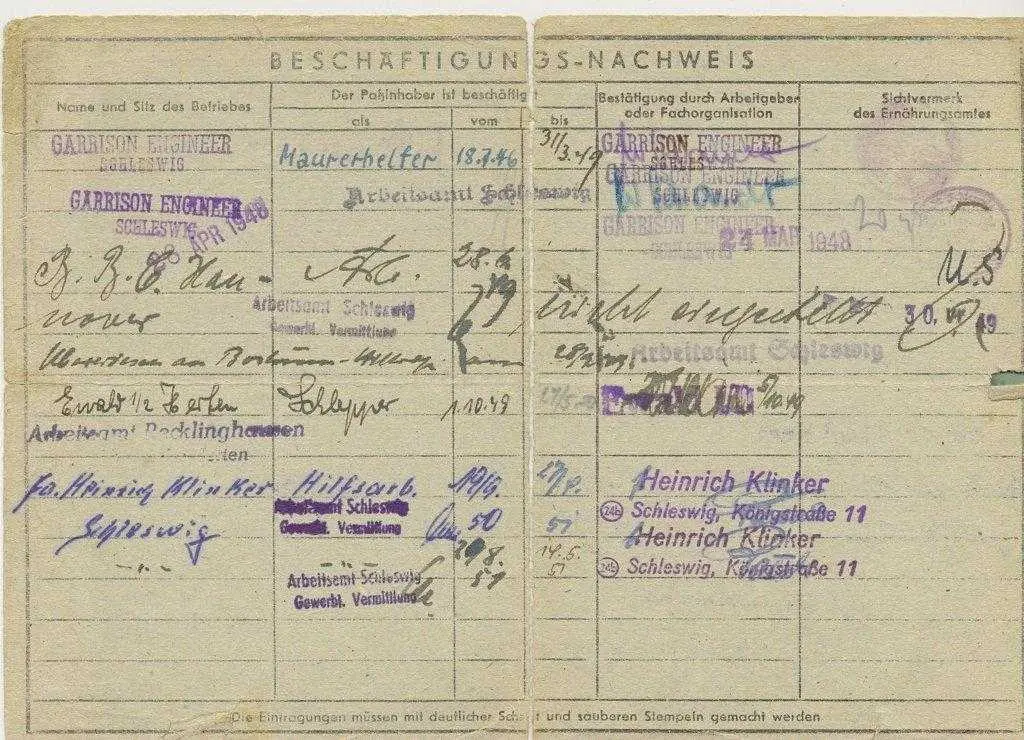 BESCHÄFTIGUNGS-NACHWEIS
Name und Sitz des Betriebes
Der Paßinhaber ist beschäftigt
als
vom
bis
Bestätigung durch Arbeitgeber oder Fachorganisation
Sichtvermerk des Ernährungsamtes
GARRISON ENGINEER
SCHLESWIG
Maurerhelfer 18.7.46 31/3.49
GARRISON ENGINEER
SCHLESWIG
GARRISON ENGINEER
SCHLESWIG
Arbeitsamt Schleswig
GARRISON ENGINEER
SCHLESWIG
APR 1948
GARRISON ENGINEER
24 MAR 1948
B. B. C. Han-
nover
Arb.
28.6
49
Arbeitsamt Schleswig
Gewerbl. Vermittlung
nicht eingestellt
30. 49
U.S
Arbeitsamt Schleswig
Ewald 1/2 Herten Schlepper 1.10.49
Arbeitsamt Recklinghausen
Fa. Heinrich Klinker Hilfsarb. 19/6. 50
Schleswig
Arbeitsamt Schleswig
Gewerbl. Vermittlung
51
Heinrich Klinker
24b Schleswig, Königstraße 11
-„-
20/8. 51
14.6. 51
Arbeitsamt Schleswig
Gewerbl. Vermittlung
Heinrich Klinker
24b Schleswig, Königstraße 11
Die Eintragungen müssen mit deutlicher Schrift und sauberen Stempeln gemacht werden